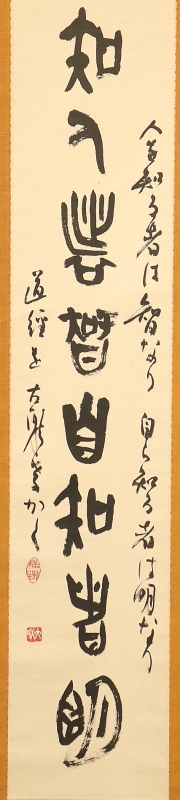 知人者智自知者明
人を知る者は智なり 自ら知る者は明なり
道經を かく